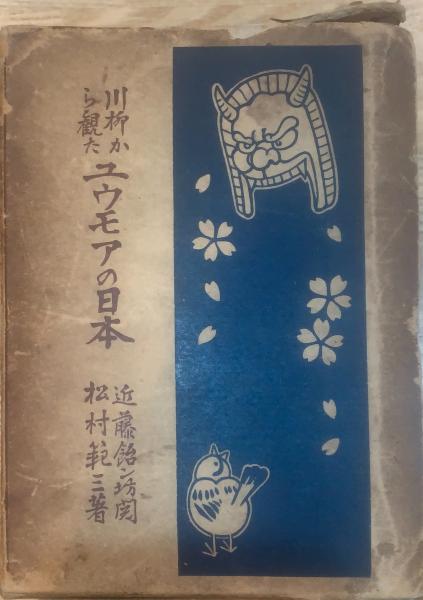 川柳か
ら観た
ユウモアの日本
近藤飴ン坊閲
松村範三著